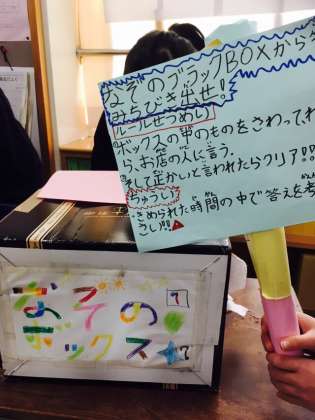 なぞのブラックBOXから
みちびき出せ!
ルールせつめい
ボックスの中のものをさわってわ
ら、お店の人に言う。
そして正かいと言われたらクリア!!
ちゅうい
きめられた時間の中で答えを考
さい!!
なぞの?
ボックス?